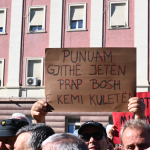 PUNUAM
GJITHË JETËN
PRAP BOSH
E KEMI KULETËN